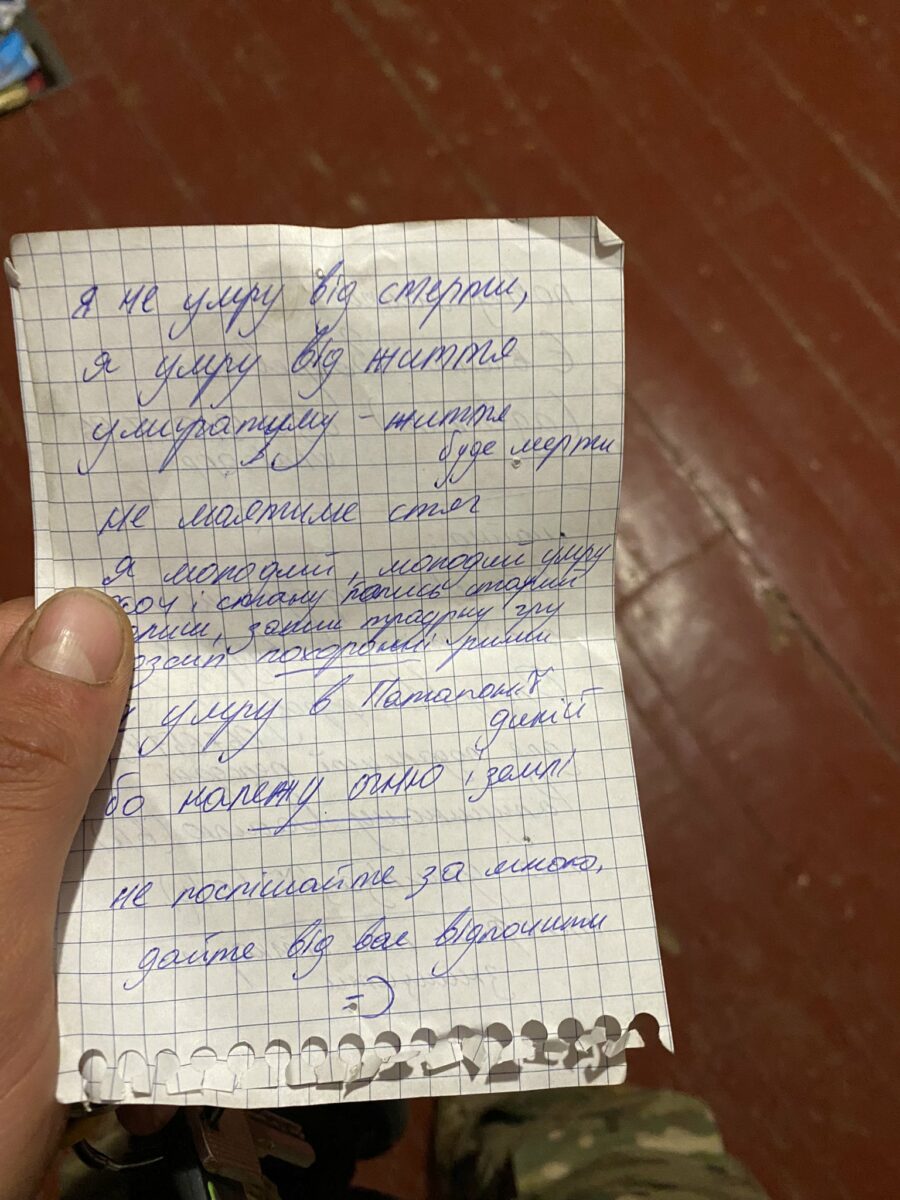 Я не умру від смерти,
я умру від життя
умиратиму – життя
буде мерти
не маятиме стяг
Я молодий, молодий умру
хоч і стану колись старий
залиш, залиш траурну гру
розсип похоронні рими
умру в Патагонії
дикій
бо належу огню і землі
не поспішайте за мною,
дайте від вас відпочити
=)